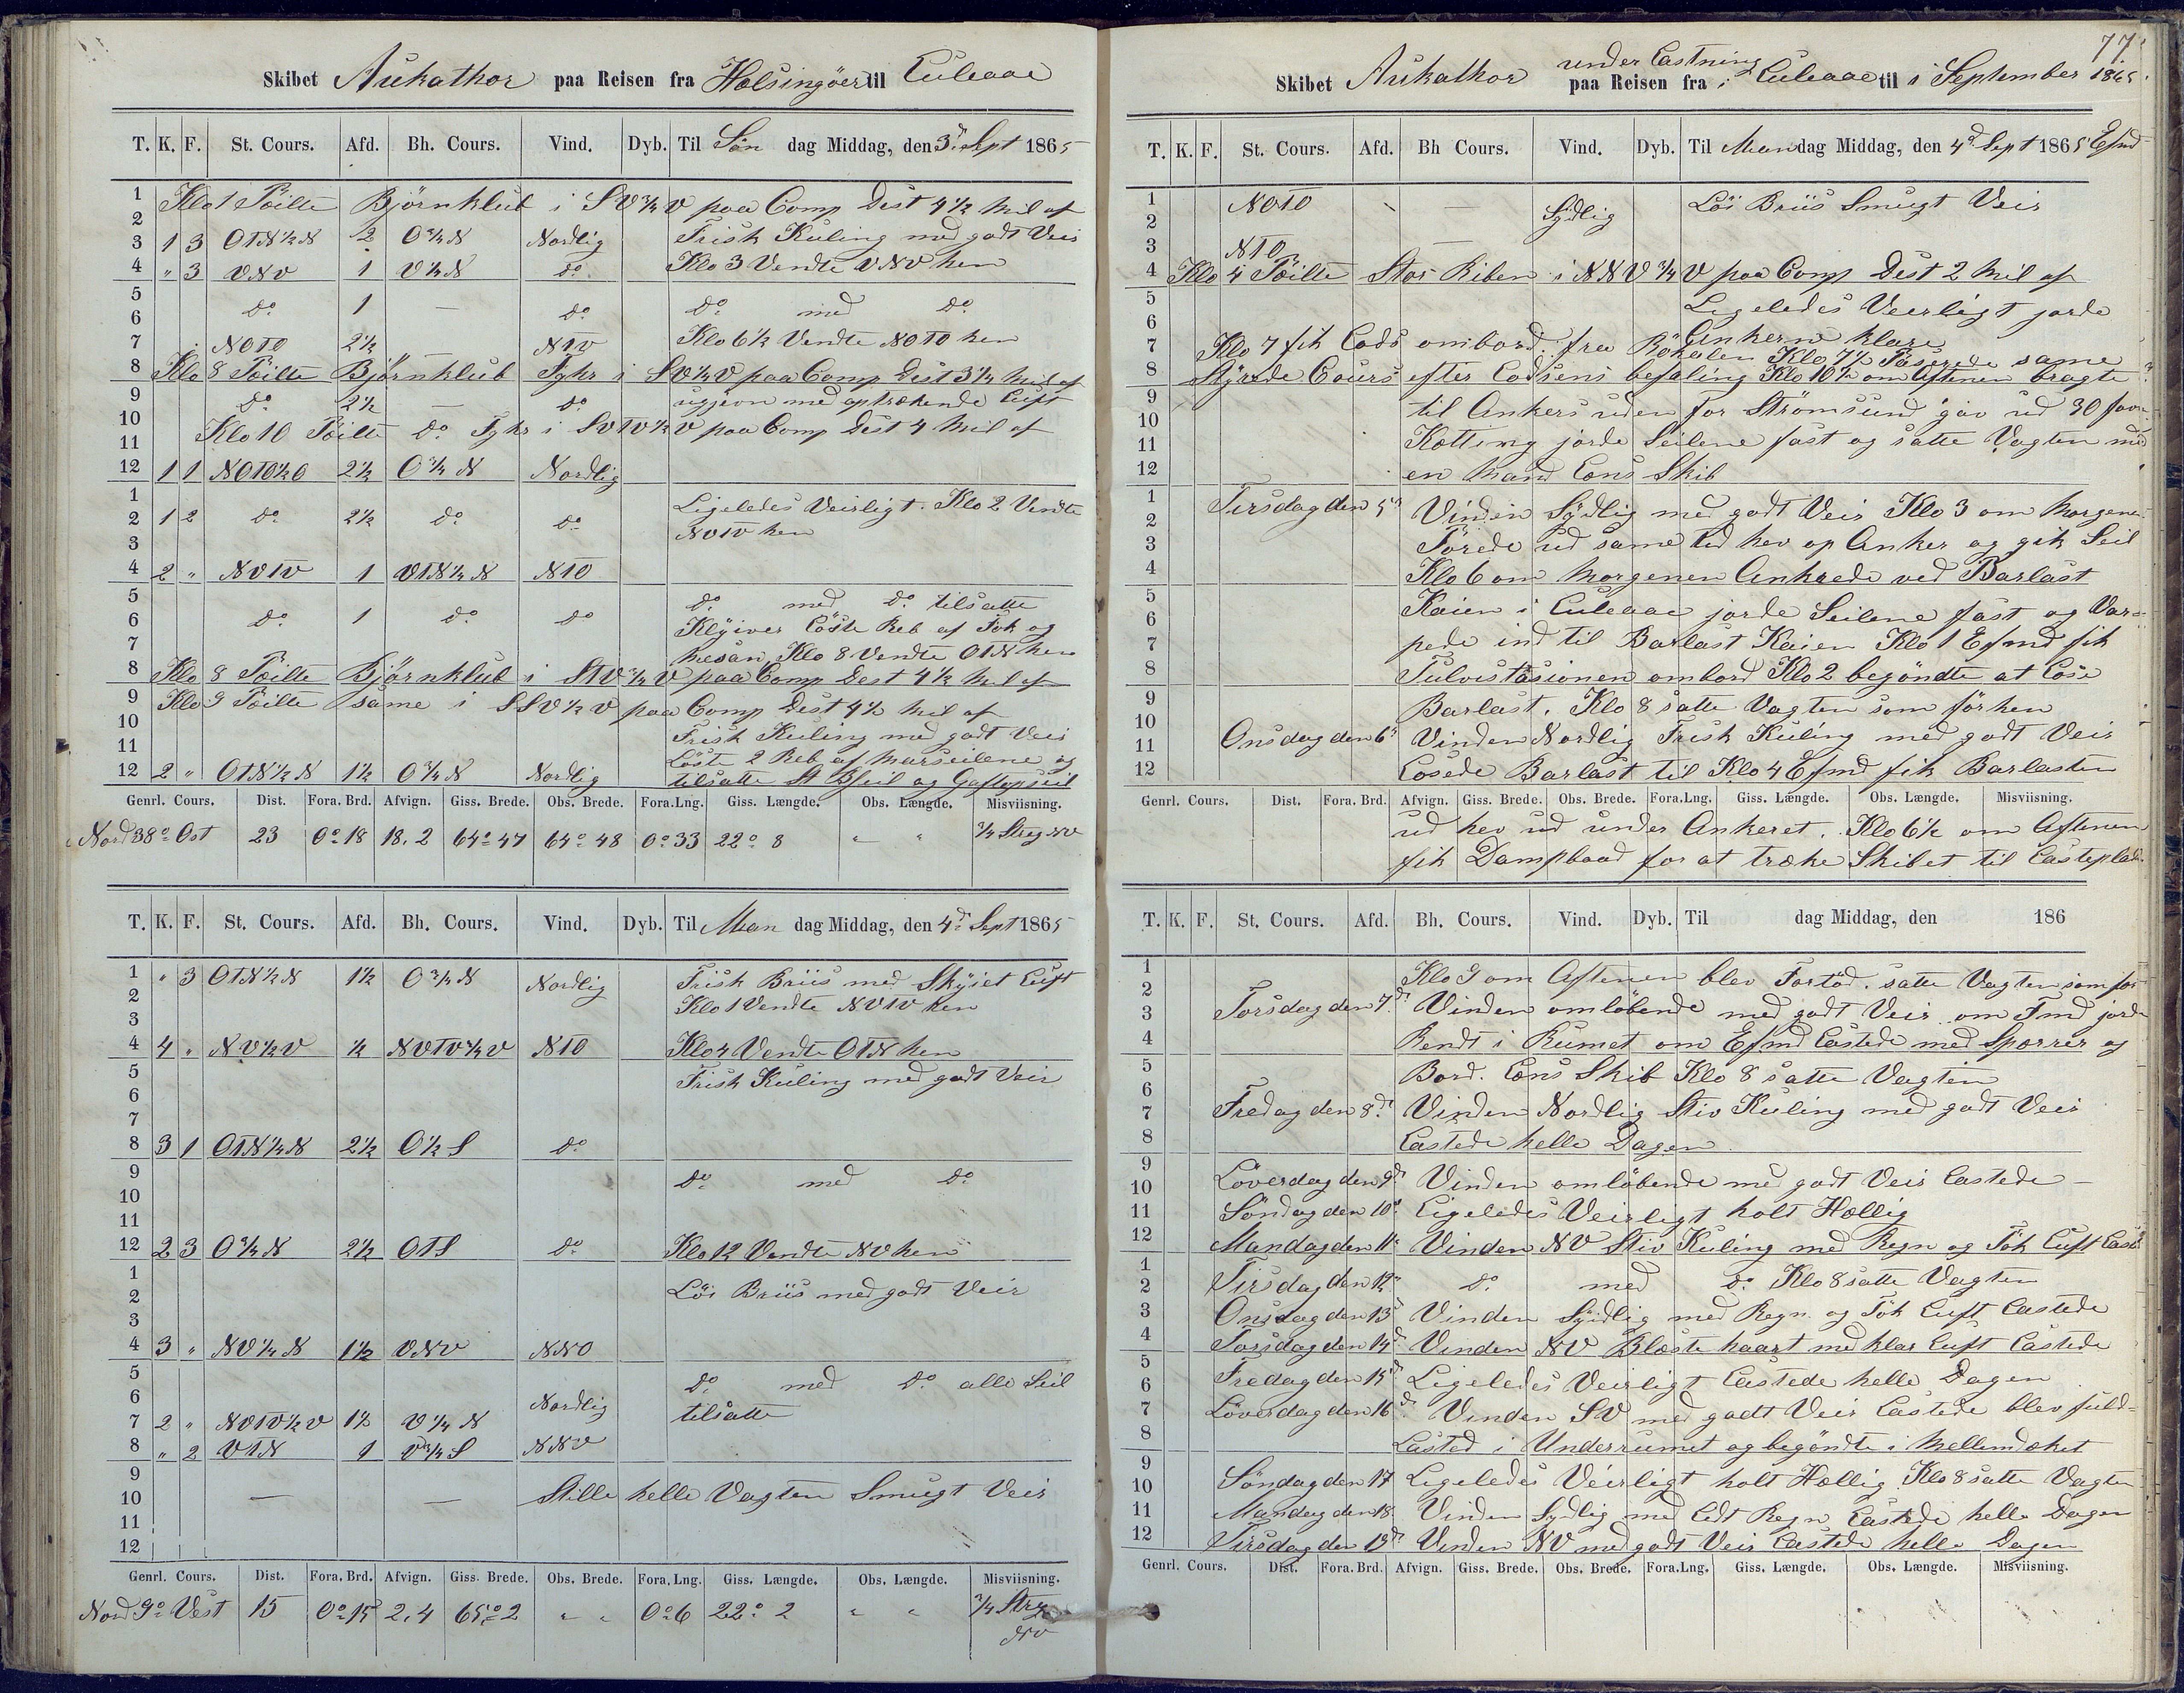 Skibet Aukathor paa Reisen fra Helsingöer til Luleaae
T. K. F. St. Cours. Afd. Bh. Cours. Vind. Dyb. Til Søn dag Middag, den 3d Sept 1865
1 Klo 1 Peilte Björnklub i SV¾V paa Comp Dist 4½ Mil af
2
3 1 3 OTN½N ½ O¾N Nordlig Frisk Kuling med godt Veir
4 " 3 VNV 1 V½N do Klo 3 Vendte VNV hen
5
6 do 1 — do do med do
7 NOTO 2½ NTV Klo 6½ Vendte NOTO hen
8 Klo 8 Peilte Björnklub Fyhr i SV½V paa Comp Dist 3½ Mil af
9 do 2½ — do ugjevn med optrækende Luft
10 Klo 10 Peilte do Fyhr i SVTV½V paa Comp Dist 4 Mil af
11
12 1 1 NOTO½O 2½ O¾N Nordlig
1 Ligeledes Veirligt. Klo 2 Vendte
2 1 2 do 2½ do do NVTV hen
3
4 2 " NVTV 1 VTN¼N NTO
5 do med do tilsatte
6 do 1 do do Klÿiver Löste Reb af Fok og
7 Mesan, Klo 8 Vendte OTN hen
8 Klo 8 Peilte Björnklub i STV¾V paa Comp Dest 4½ Mil af
9 Klo 9 Peilte same i SSV½V paa Comp Dist 4½ Mil af
10 Frisk Kuling med godt Veir
11 Löste 2 Reb af Marseilene og
12 2 " OTN½N 1½ O¾N Nordlig tilsatte St Bseil og Gaftopseil
Genrl. Cours. Dist. Fora. Brd. Afvign. Giss. Brede. Obs. Brede. Fora.Lng. Giss. Længde. Obs. Længde. Misviisning.
Nord 38° Ost 23 0° 18 18.2 64° 47 64° 48 0° 33 22° 8 " " ¾ Streg NV
T. K. F. St. Cours. Afd. Bh. Cours. Vind. Dyb. Til Man dag Middag, den 4d Sept 1865
1 " 3 OTN½N 1½ O¾N Nordlig Frisk Briis med Skÿiet Luft
2 Klo 1 Vendte NVTV hen
3
4 4 " NV½V ½ NVTV¾V NTO Klo 4 Vendte OTN hen
5 Frisk Kuling med godt Veir
6
7
8 3 1 OTN¼N 2½ O½S do
9 do med do
10
11
12 2 3 O¾N 2½ OTS do Klo 12 Vendte NV hen
1 Löi Briis med godt Veir
2
3
4 3 " NV¼N 1½ VNV NNO
5 do med do alle Seil
6 Nordlig tilsatte
7 2 " NVTV½V 1½ V¼N
8 " 2 VTN 1 V¾S NNV
9
10 — — Stille helle Vagten Smugt Veir
11
12
Genrl. Cours. Dist. Fora. Brd. Afvign. Giss. Brede. Obs. Brede. Fora. Lng. Giss. Længde. Obs. Længde. Misviisning.
Nord 9° Vest 15 0° 15 2,4 65° 2 " " 0° 6 22° 2 " " ¾ Streg
NV
77
under Lastning
Skibet Aukathor paa Reisen fra i Luleaae til i September 1865
T. K. F. St. Cours. Afd. Bh Cours. Vind. Dyb. Til Man dag Middag, den 4d Sept 1865 Efmd
1 NOTO — Sÿdlig Löi Briis Smugt Veir
2
3 NTO —
4 Klo 4 Peilte Stor Riben i NNV¾V paa Comp Dist 2 Mil af
5 Ligeledes Veirligt jorde
6 Ankerne klare
7 Klo 7 fik Lods ombord fra Rökalen Klo 7½ Paserede same
8 Stÿrede Cours efter Lodsens befaling Klo 10½ om Aftenen bragte
9 til Ankers uden for Strömsund gav ud 30 favn
10
11 Ketting jorde Seilene fast og satte Vagten med
12 en Mand Lens Skib
1 Tirsdag den 5d Vinden Sÿdlig med godt Veir Klo 3 om Morgenen
2
3 Törede ud same tid hev op Anker og gik Seil
4 Klo 6 om Morgenen Ankrede ved Barlast
5 Kaien i Luleaae jorde Seilene fast og Var=
6
7 pede ind til Barlast Kaien Klo 1 Efmd fik
8 Tulvistasionen ombord Klo 2 begöndte at Löse
9 Barlast. Klo 8 satte Vagten som för hen
10
11 Onsdag den 6d Vinden Nordlig Frisk Kuling med godt Veir
12 Losede Barlast til Klo 4 Efmd fik Barlasten
Genrl. Cours. Dist. Fora. Brd. Afvign. Giss. Brede. Obs. Brede. Fora.Lng. Giss. Længde. Obs. Længde. Misviisning.
ud hev ud under Ankeret. Klo 6½ om Aftenen
fik Dampbaad for at træke Skibet til Lasteplads
T. K. F. St. Cours. Afd. Bh. Cours. Vind. Dyb. Til dag Middag, den 186
1 Klo 9 om Aftenen blev Fortöd. satte Vagten som för
2
3 Torsdag den 7d Vinden omlöbende med godt Veir om Fmd jorde
4 Rendt i Rumet om Efmd Lastede med Sparrer og
5 Bord. Lens Skib Klo 8 satte Vagten
6
7 Fredag den 8d Vinden Nordlig Stiv Kuling med godt Veir
8 Lastede helle Dagen
9
10 Löverdag den 9d Vinden omlöbende med godt Veir Lastede —
11 Söndag den 10d Ligeledes Veirligt holt Hellig
12 Mandag den 11d Vinden NV Stiv Kuling med Regn og Tök Luft Last
1
2 Tirsdag den 12d do med do Klo 8 satte Vagten
3 Onsdag den 13d Vinden Sÿdlig med Regn og Tök Luft Lastede
4 Torsdag den 14d Vinden NV Blæste haart med klar Luft Lastede
5
6 Fredag den 15d Ligeledes Veirligt Lastede helle Dagen
7 Löverdag den 16d Vinden SV med godt Veir Lastede blev fuld=
8 Lasted i Underrumet og begöndte i Mellemdæket
9
10 Söndag den 17 Ligeledes Veirligt holt Hellig Klo 8 satte Vagten
11 Mandag den 18 Vinden Sydlig med Lidt Regn Lastede helle Dagen
12 Tirsdag den 19d Vinden NV med godt Veir Lastede helle Dagen
Genrl. Cours. Dist. Fora. Brd. Afvign. Giss. Brede. Obs. Brede. Fora.Lng. Giss. Længde. Obs. Længde. Misviisning.